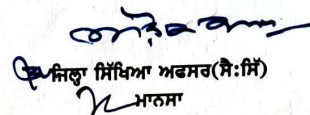 ਜਿਲ੍ਹਾ ਸਿੱਖਿਆ ਅਫਸਰ(ਸੈ:ਸਿੱ)
ਮਾਨਸਾ